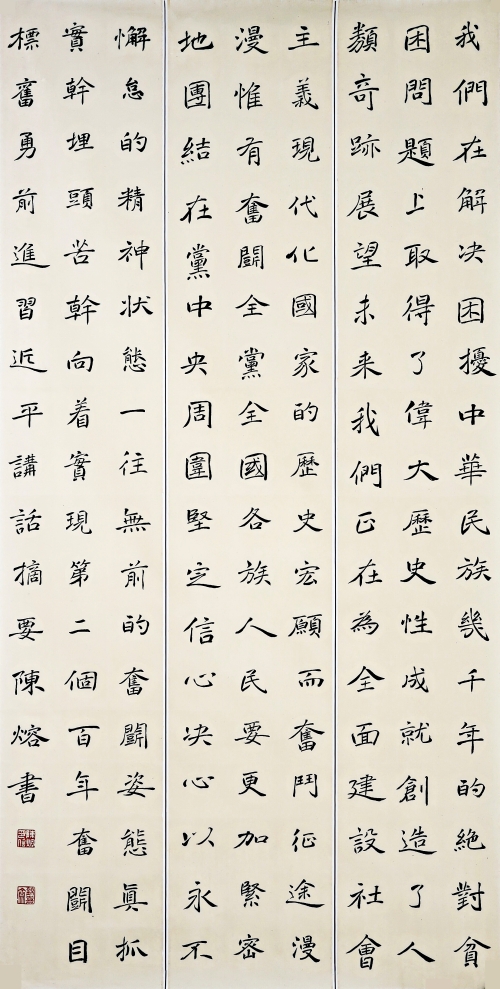 我們在解决困擾中華民族幾千年的絶對貧
困問題上取得了偉大歷史性成就創造了人
類奇跡展望未来我們正在為全面建設社會
主義現代化國家的歷史宏願而奮鬥征途漫
漫惟有奮闘全黨全國各族人民要更加緊密
地團結在黨中央周圍堅定信心决心以永不
懈怠的精神狀態一往無前的奮闘姿態真抓
實幹埋頭苦幹向着實現第二個百年奮闘目
標奮勇前進習近平講話摘要陳熔書